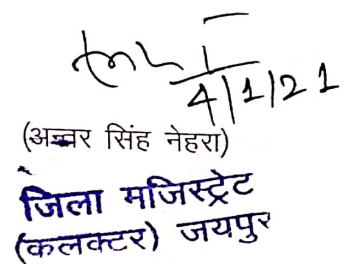 4/1/21
(अन्तर सिंह नेहरा)
जिला मजिस्ट्रेट
(कलक्टर) जयपुर